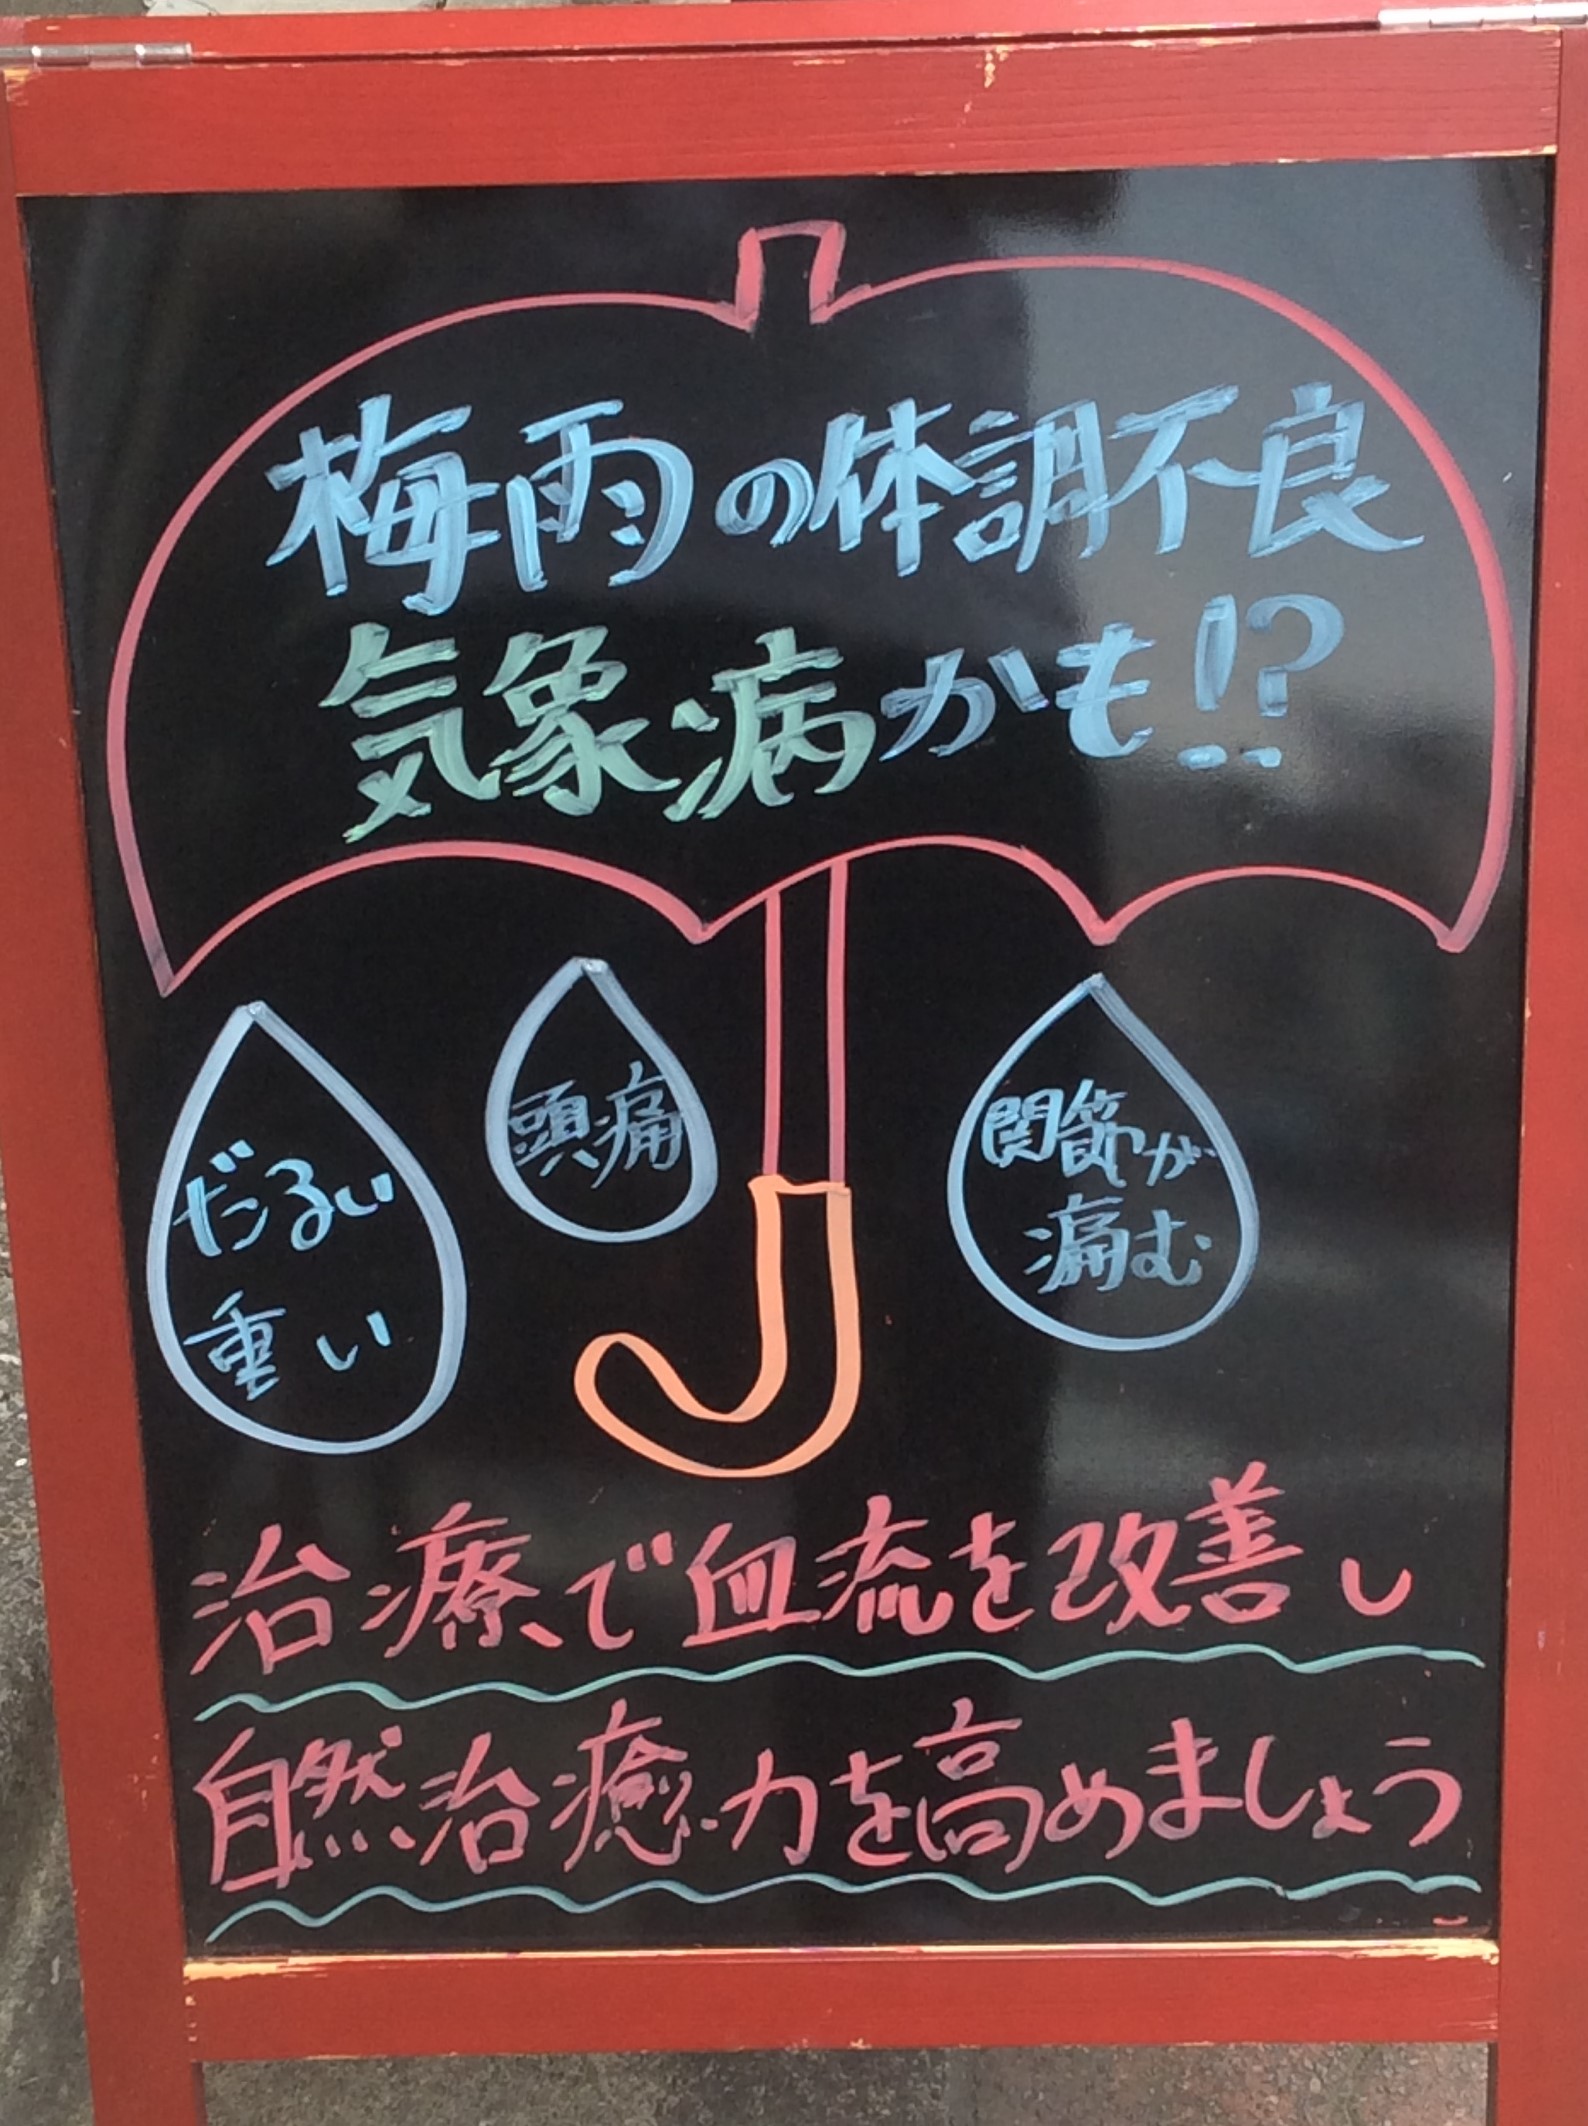 梅雨の体調不良
気象病かも!?
だるい
重い
頭痛
関節が
痛む
治療で血流を改善し
自然治癒力を高めましょう